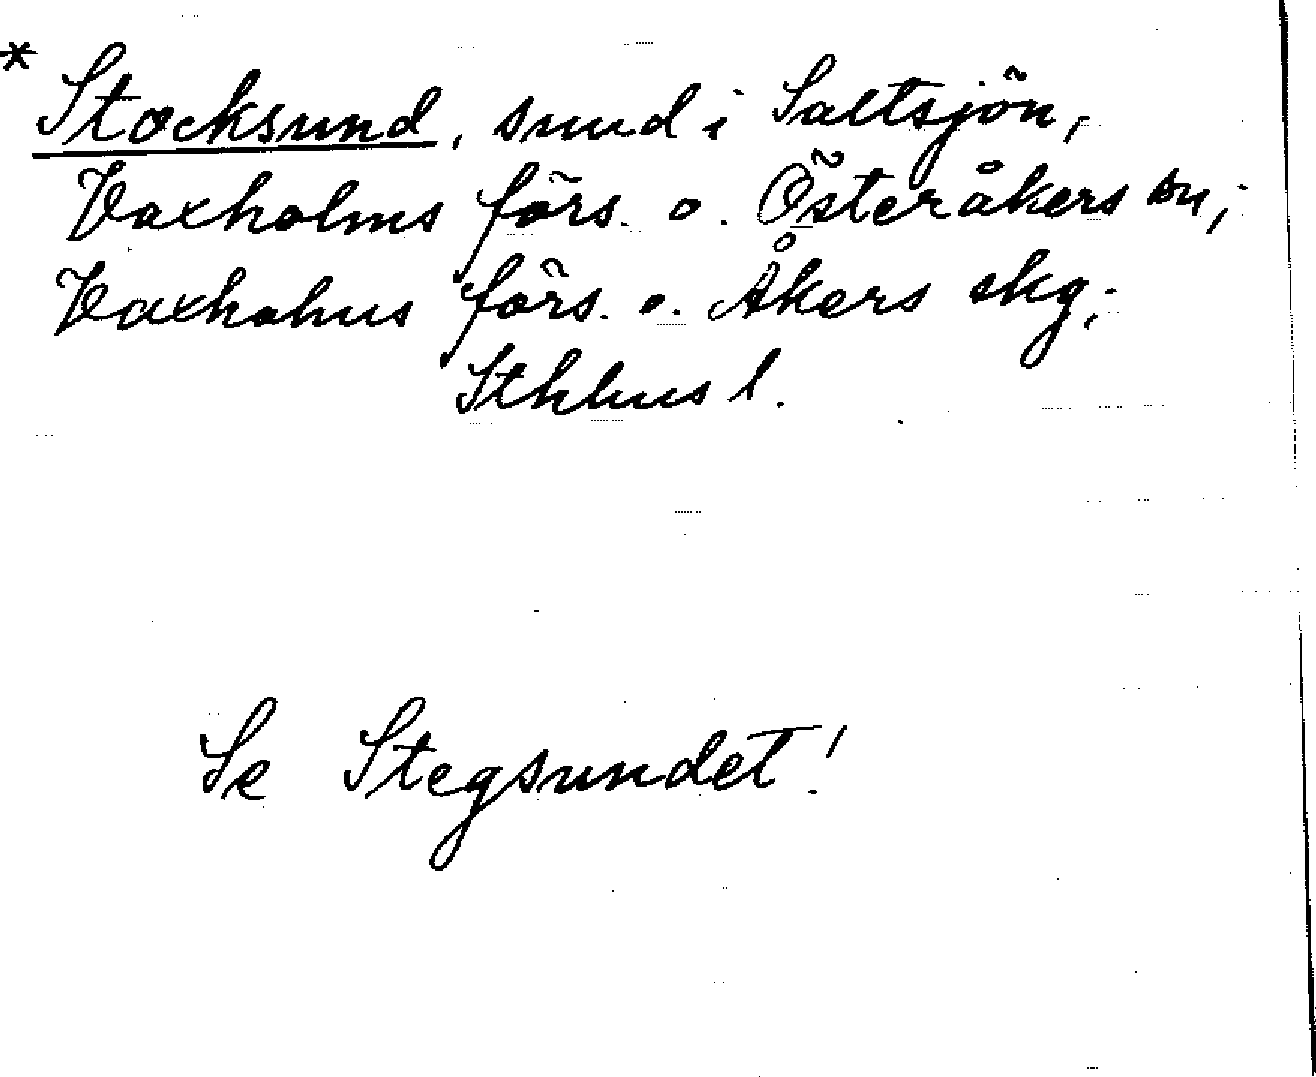 * Stocksund, sund i Saltsjön,
Vaxholms förs. o. Österåkers sn;
Vaxholms förs. o. Åkers skg;
Sthlms l.
Se Stegsundet!